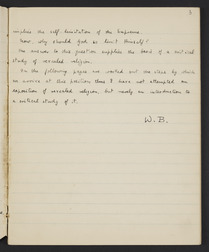 3
implies the self limitation of the Supreme.
Now, why should God so limit Himself?
The answer to this question supplies the basis of a critical
study of revealed religion.
In the following pages are worked out the ideas by which
we arrive at this position; thus I have not attempted an
exposition of revealed religion, but merely an introduction to
a critical study of it.
W. B.